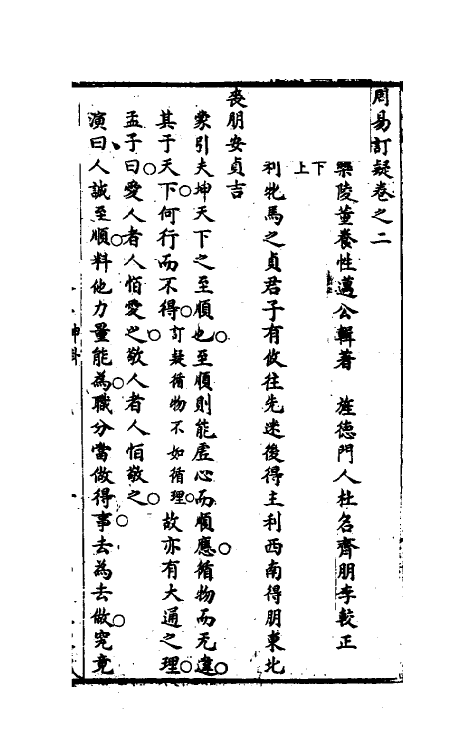 周易訂疑卷之二
樂陵董養性邁公輯著 旌德門人杜名齊朋李較正
下
上
利牝馬之貞君子有攸往先迷後得主利西南得朋東北
喪朋安貞吉
蒙引夫坤天下之至順也至順則能虛心而順應循物而无違
其于天下何行而不得訂疑循物不如循理故亦有大通之理
孟子曰愛人者人恒愛之敬人者人恒敬之
演曰人誠至順料他力量能為職分當做得事去為去做究竟
坤卦